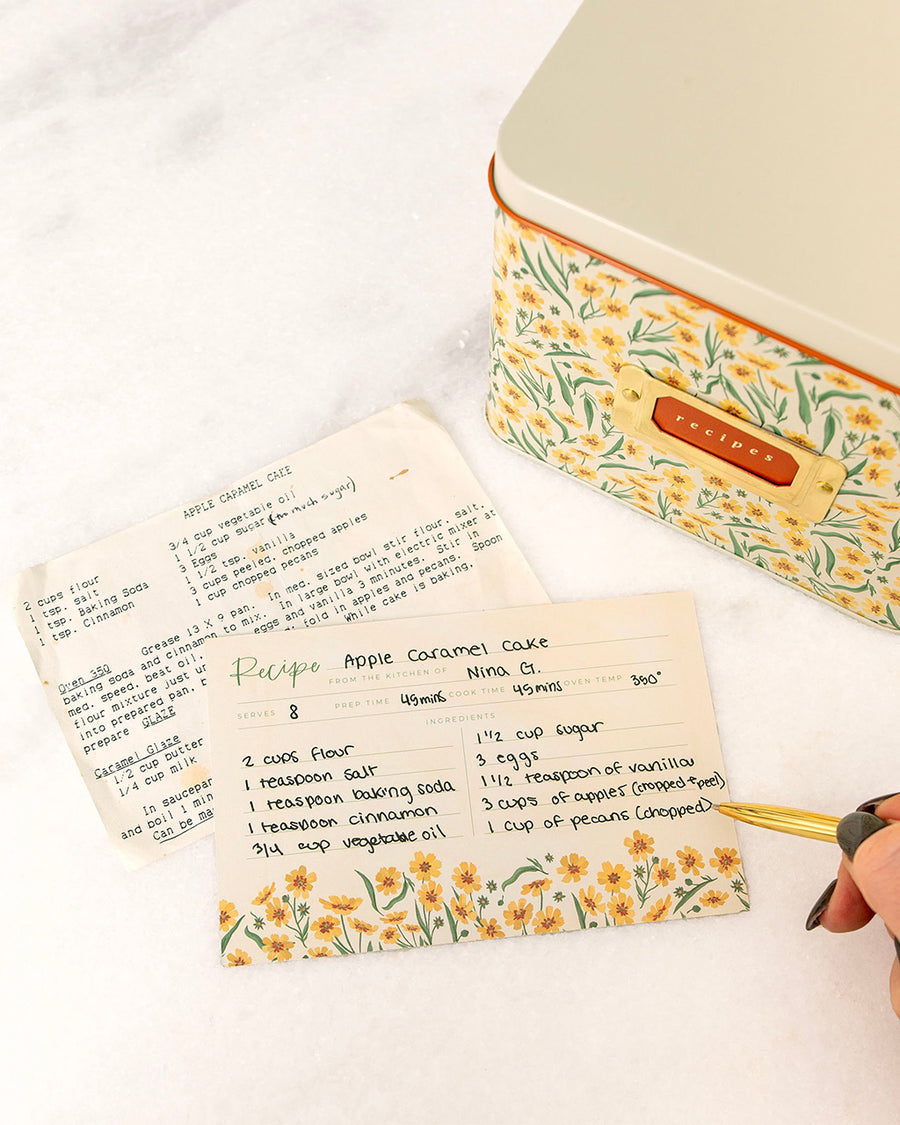 recipes
APPLE CARAMEL CAKE
2 cups flour
1 tsp. salt
1 tsp. Baking Soda
1 tsp. Cinnamon
3/4 cup vegetable oil
1 1/2 cup sugar (too much sugar)
3 Eggs
1 1/2 tsp. vanilla
3 cups peeled, chopped apples
1 cup chopped pecans
Oven 350 Grease 13 X 9 pan. In med. sized bowl stir flour, salt,
baking soda and cinnamon to mix. In large bowl with electric mixer at
med. speed, beat oil, eggs and vanilla 3 minutes. Stir in
flour mixture just un fold in apples and pecans. Spoon
into prepared pan, b While cake is baking,
prepare GLAZE
Caramel Glaze
1/2 cup butter
1/4 cup milk
In saucepan
and boil 1 min
Can be ma
Recipe Apple Caramel Cake
FROM THE KITCHEN OF Nina G.
SERVES 8 PREP TIME 45mins COOK TIME 45mins OVEN TEMP 350°
INGREDIENTS
2 cups flour
1 teaspoon salt
1 teaspoon baking soda
1 teaspoon cinnamon
3/4 cup vegetable oil
1 1/2 cup sugar
3 eggs
1 1/2 teaspoon of vanilla
3 cups of apples (cropped + peel)
1 cup of pecans (chopped)